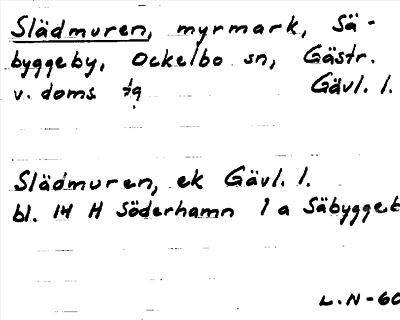 Slädmuren, myrmark, Sä-
byggeby, Ockelbo sn, Gästr.
v. doms Gävl. l.
Slädmuren, ek Gävl. l.
bl. 14 H Söderhamn 1 a Säbyggeb
L.N-60